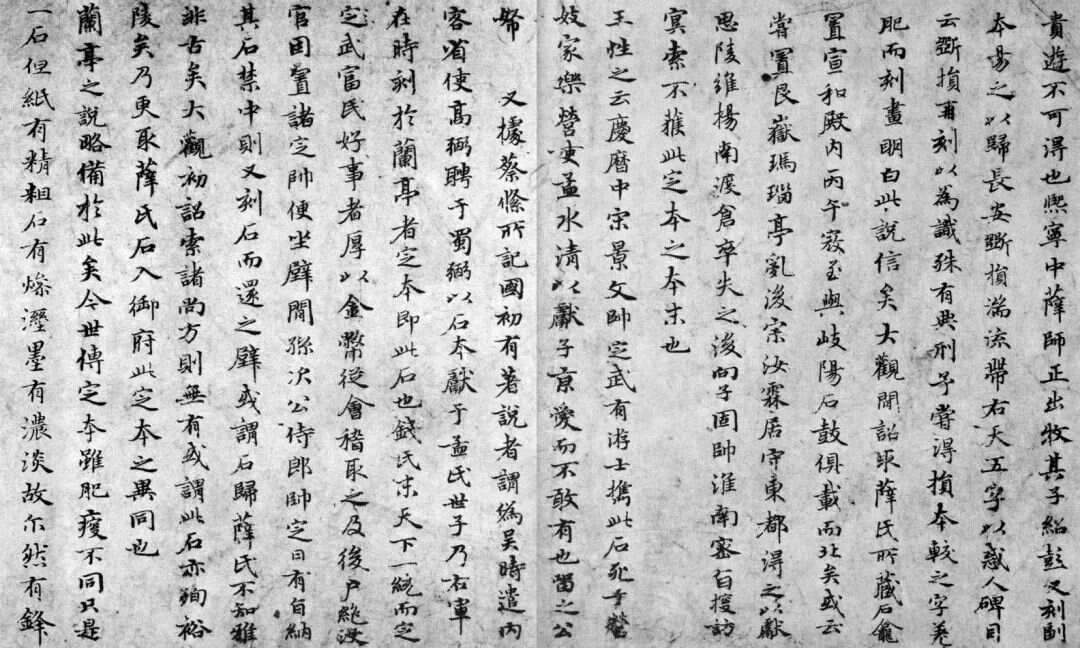 貴遊不可得也熙寧中薛師正出牧其子紹彭又刻副
本易之以歸長安斲損湍流帶右天五字以惑人碑目
云斲損再刻以為識殊有典刑予嘗得損本較之字差
肥而刻畫明白此說信矣大觀間詔取薛氏所藏石龕
置宣和殿內丙午寇至與岐陽石鼓俱載而北矣或云
嘗置艮嶽瑪瑙亭亂後宗汝霖居守東都得之以獻
思陵維揚南渡倉卒失之後向子固帥淮南密旨搜訪
冥索不獲此定本之本末也
王性之云慶曆中宋景文帥定武有游士攜此石死于營
妓家樂營使孟水清以獻子京愛而不敢有也留之公
帑 又據蔡絛所記國初有著說者謂為吳時遣內
客省使高弼聘于蜀弼以石本獻于孟氏世子乃右軍
在時刻於蘭亭者定本即此石也錢氏末天下一統而定
定武富民好事者厚以金幣從會稽取之及後戶絕沒
官因置諸定帥便坐壁間孫次公侍郎帥定日有旨納
其石禁中則又刻石而還之壁或謂石歸薛氏不知雅
非古矣大觀初詔索諸尚方則無有或謂此石亦殉裕
陵矣乃更取薛氏石入御府此定本之異同也
蘭亭之說略備於此矣今世傳定本雖肥瘦不同只是
一石但紙有精粗石有燥溼墨有濃淡故尓然有鋒